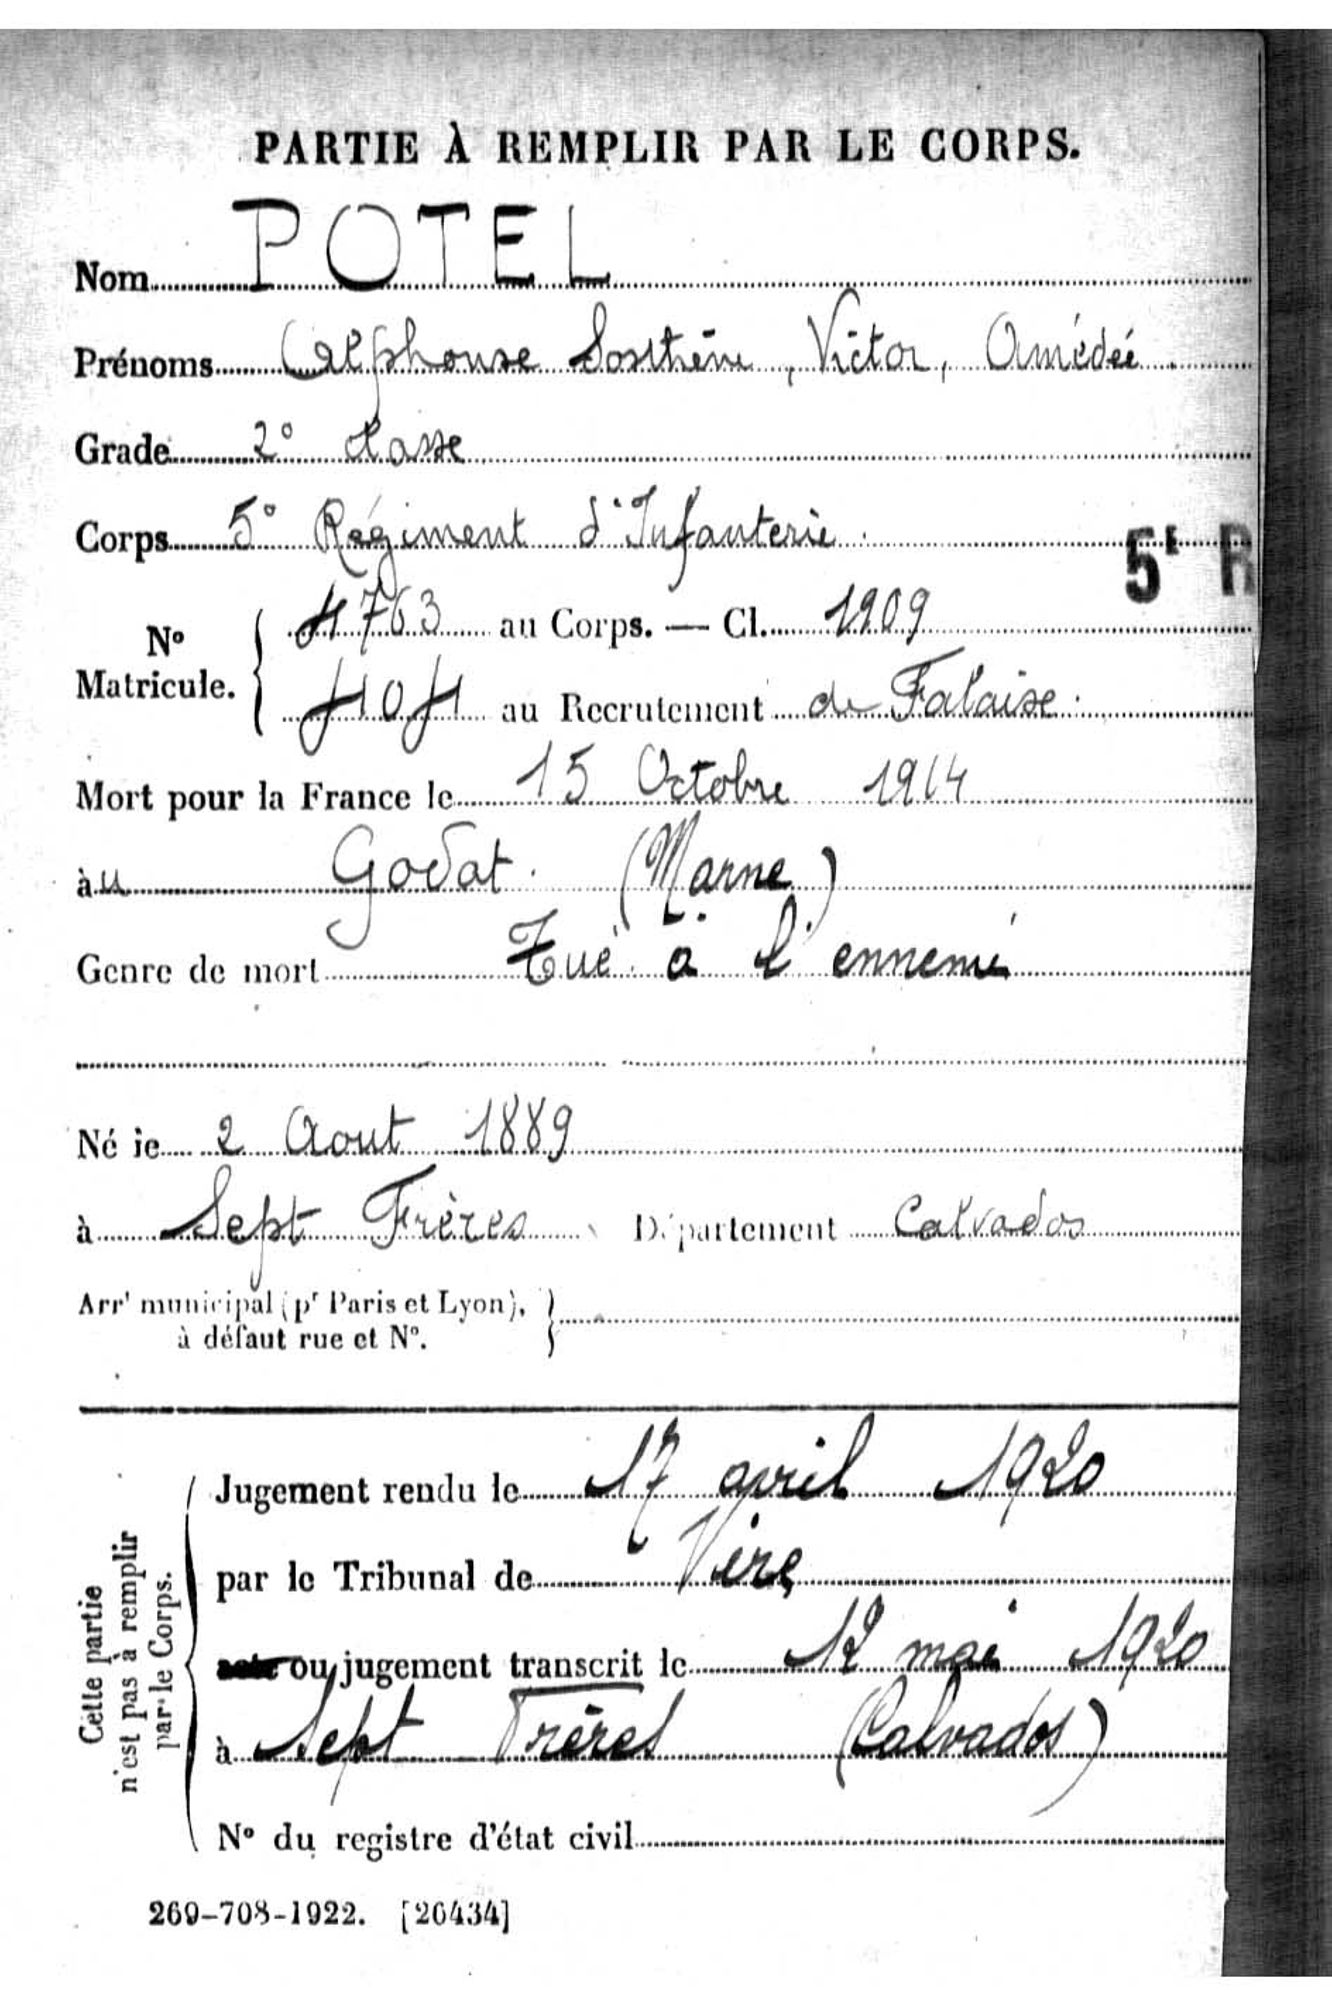 PARTIE À REMPLIR PAR LE CORPS.
Nom POTEL
Prénoms Alphonse Sosthène, Victor, Amédée
Grade 2e classe
Corps 5e Régiment d'Infanterie.
5e R
No Matricule. 4763 au Corps. — Cl. 1909
404 au Recrutement de Falaise.
Mort pour la France le 15 Octobre 1914
àu Godat. (Marne)
Genre de mort Tué à l'ennemi
Né le 2 Aout 1889
à Sept Frères Département Calvados
Arrt municipal (pr Paris et Lyon),
à défaut rue et No.
Cette partie
n'est pas à remplir
par le Corps.
Jugement rendu le 17 avril 1920
par le Tribunal de Vire
acte ou jugement transcrit le 12 mai 1920
à Sept Frères (Calvados)
No du registre d'état civil
269-708-1922. [26434]